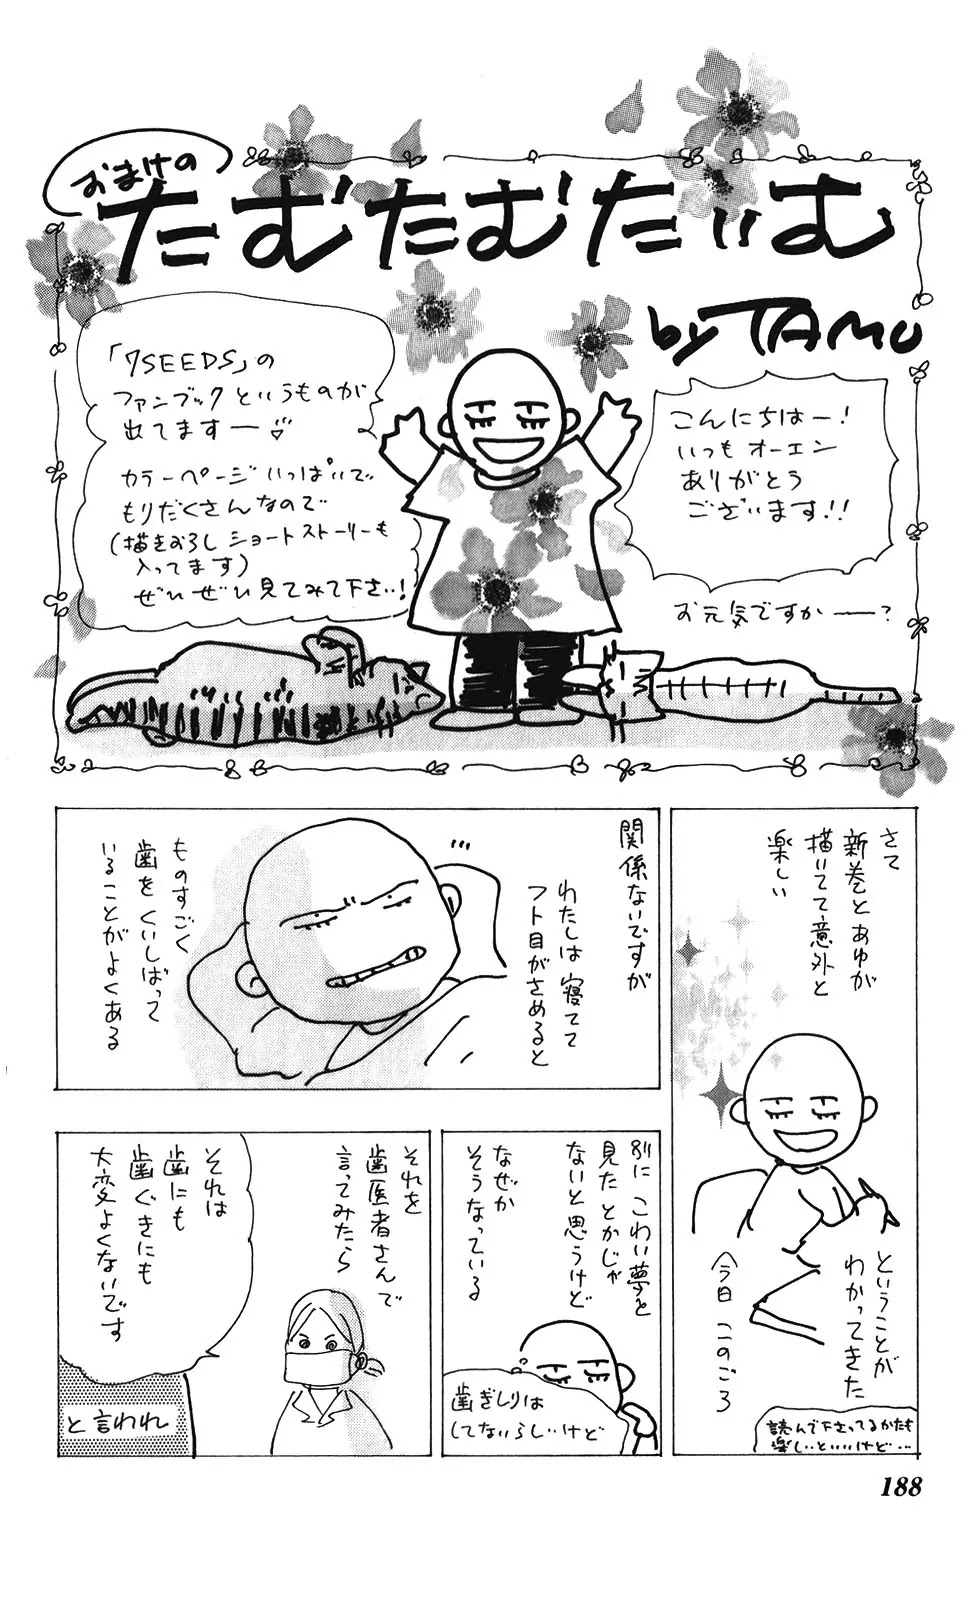 おまけの
たむたむたいむ
by TAMU
こんにちはー!
いつもオーエン
ありがとう
ございます!!
お元気ですかー?
「7SEEDS」の
ファンブックというものが
出てますー♡
カラーページいっぱいで
もりだくさんなので
(描きおろしショートストーリーも
入ってます)
ぜひぜひ見てみて下さい!
さて
新巻とあゆが
描いてて意外と
楽しい
ということが
わかってきた
今日このごろ
読んで下さってるかたも
楽しいといいけど…
関係ないですが
わたしは寝てて
フト目がさめると
ものすごく
歯をくいしばって
いることがよくある
別にこわい夢を
見たとかじゃ
ないと思うけど
なぜか
そうなっている
歯ぎしりは
してないらしいけど
それを
歯医者さんで
言ってみたら
それは
歯にも
歯ぐきにも
大変よくないです
と言われ
188